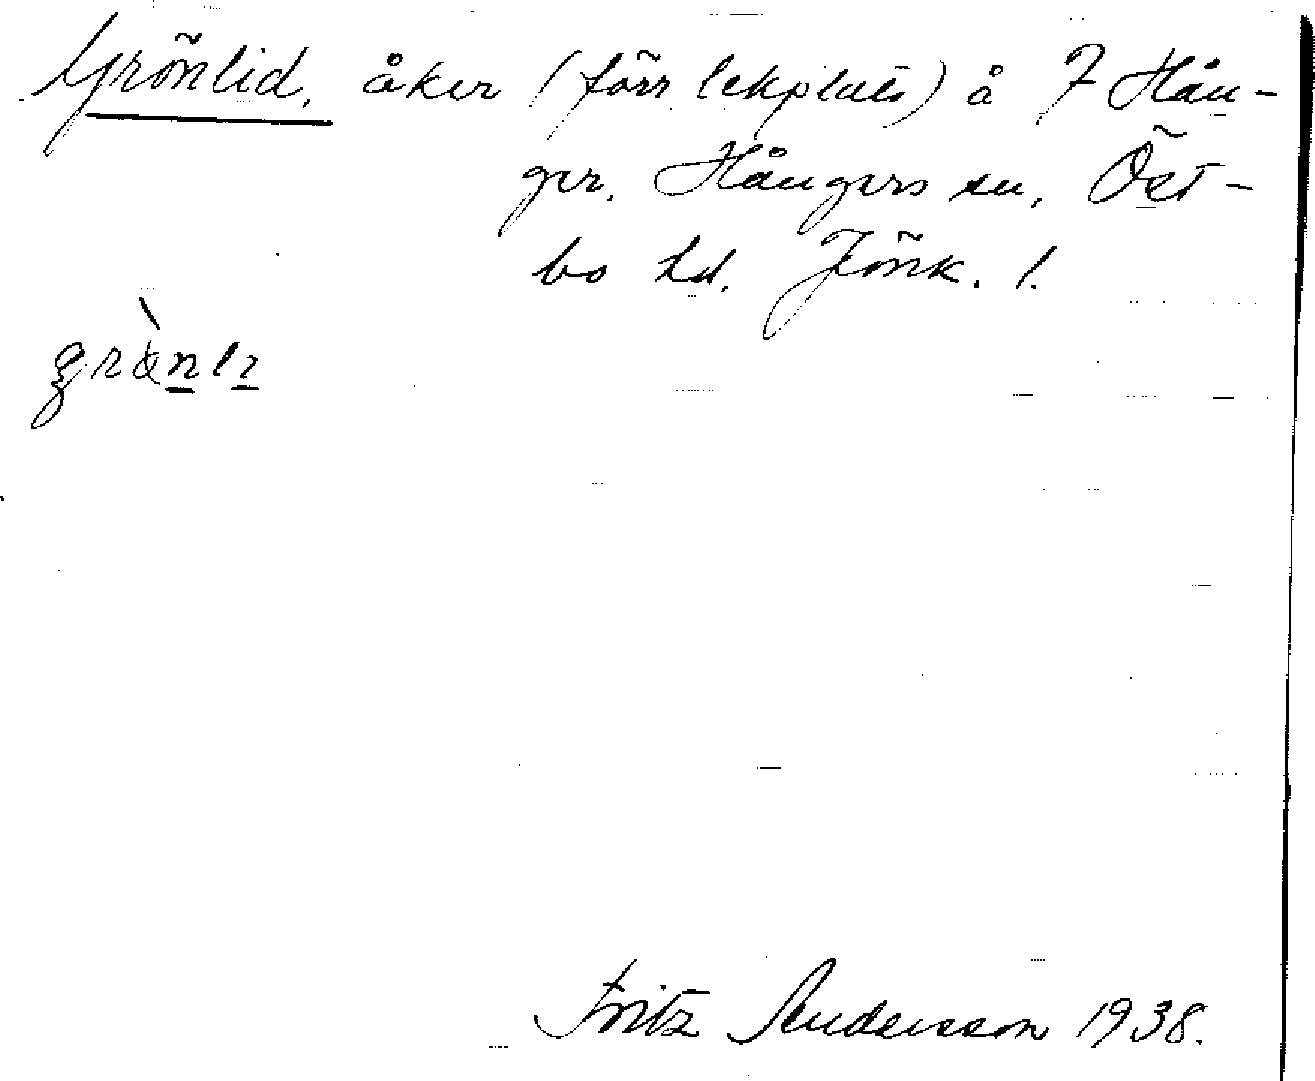 Grönlid, åker (förr lekplats) å 7 Hån-
ger, Hångers sn, Öst-
bo hd. Jönk. l.
Fritz Andersson 1938.